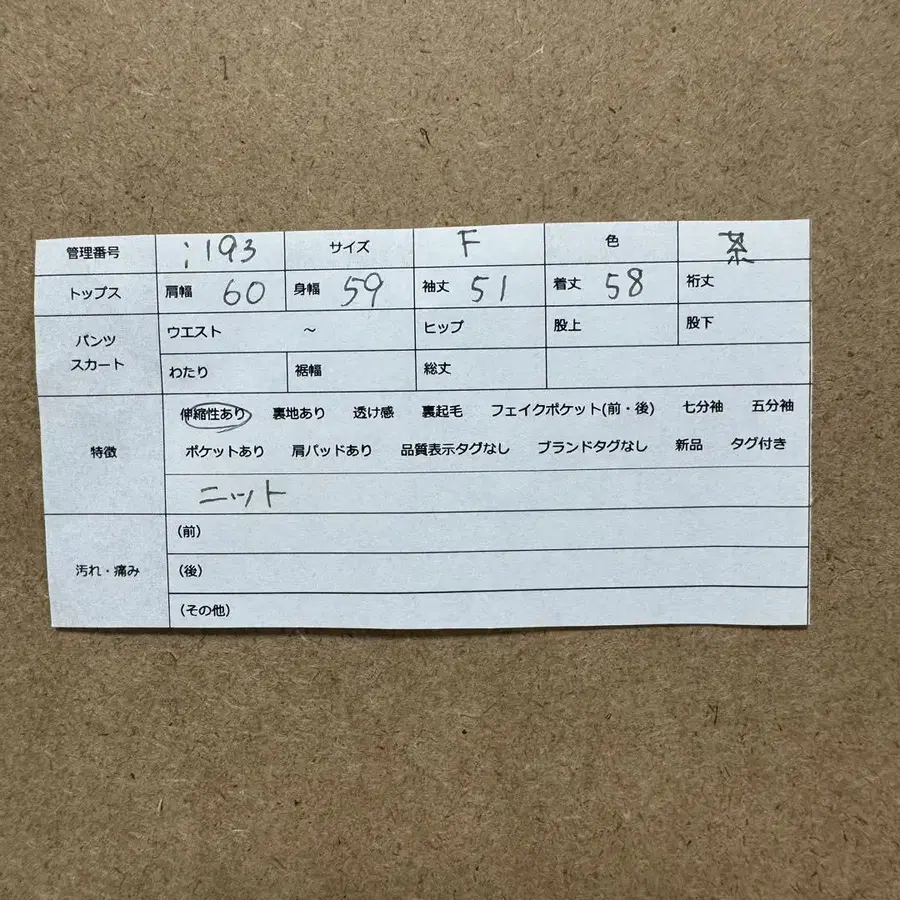 管理番号 i193 サイズ F 色 茶
トップス 肩幅 60 身幅 59 袖丈 51 着丈 58 裄丈
パンツ スカート ウエスト ～ ヒップ 股上 股下
わたり 裾幅 総丈
特徴 伸縮性あり 裏地あり 透け感 裏起毛 フェイクポケット(前・後) 七分袖 五分袖
ポケットあり 肩パッドあり 品質表示タグなし ブランドタグなし 新品 タグ付き
ニット
汚れ・痛み (前)
(後)
(その他)